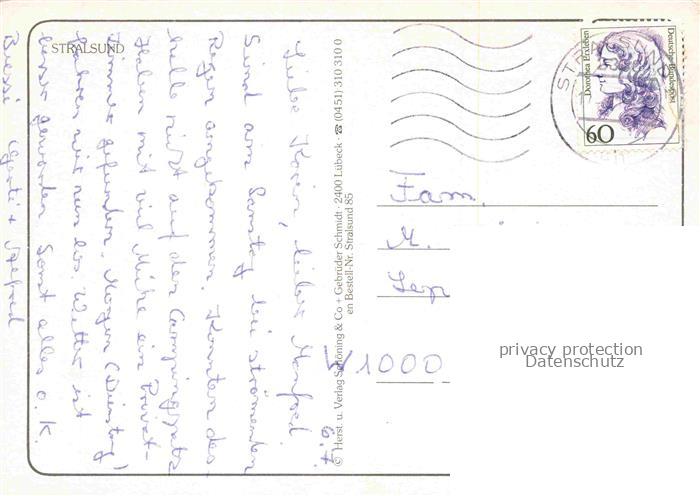 STRALSUND
6.7.
Liebe Karin, lieber Manfred
Sind am Samstag bei strömenden
Regen angekommen. Konnten des
halb nicht auf den Campingplatz
Haben mit viel Mühe ein Privat-
zimmer gefunden. Morgen (Dienstag)
fahren wir nun los. Wetter ist
besser geworden Sonst alles O.K.
Bussi Gerti + Alfred
© Herst. u. Verlag Schöning & Co + Gebrüder Schmidt · 2400 Lübeck · ☎ (0451) 310 310 0
en Bestell-Nr. Stralsund 85
Deutsche Bundespost
Dorothea Erxleben
60
Fam.
M.
W1000
privacy protection
Datenschutz